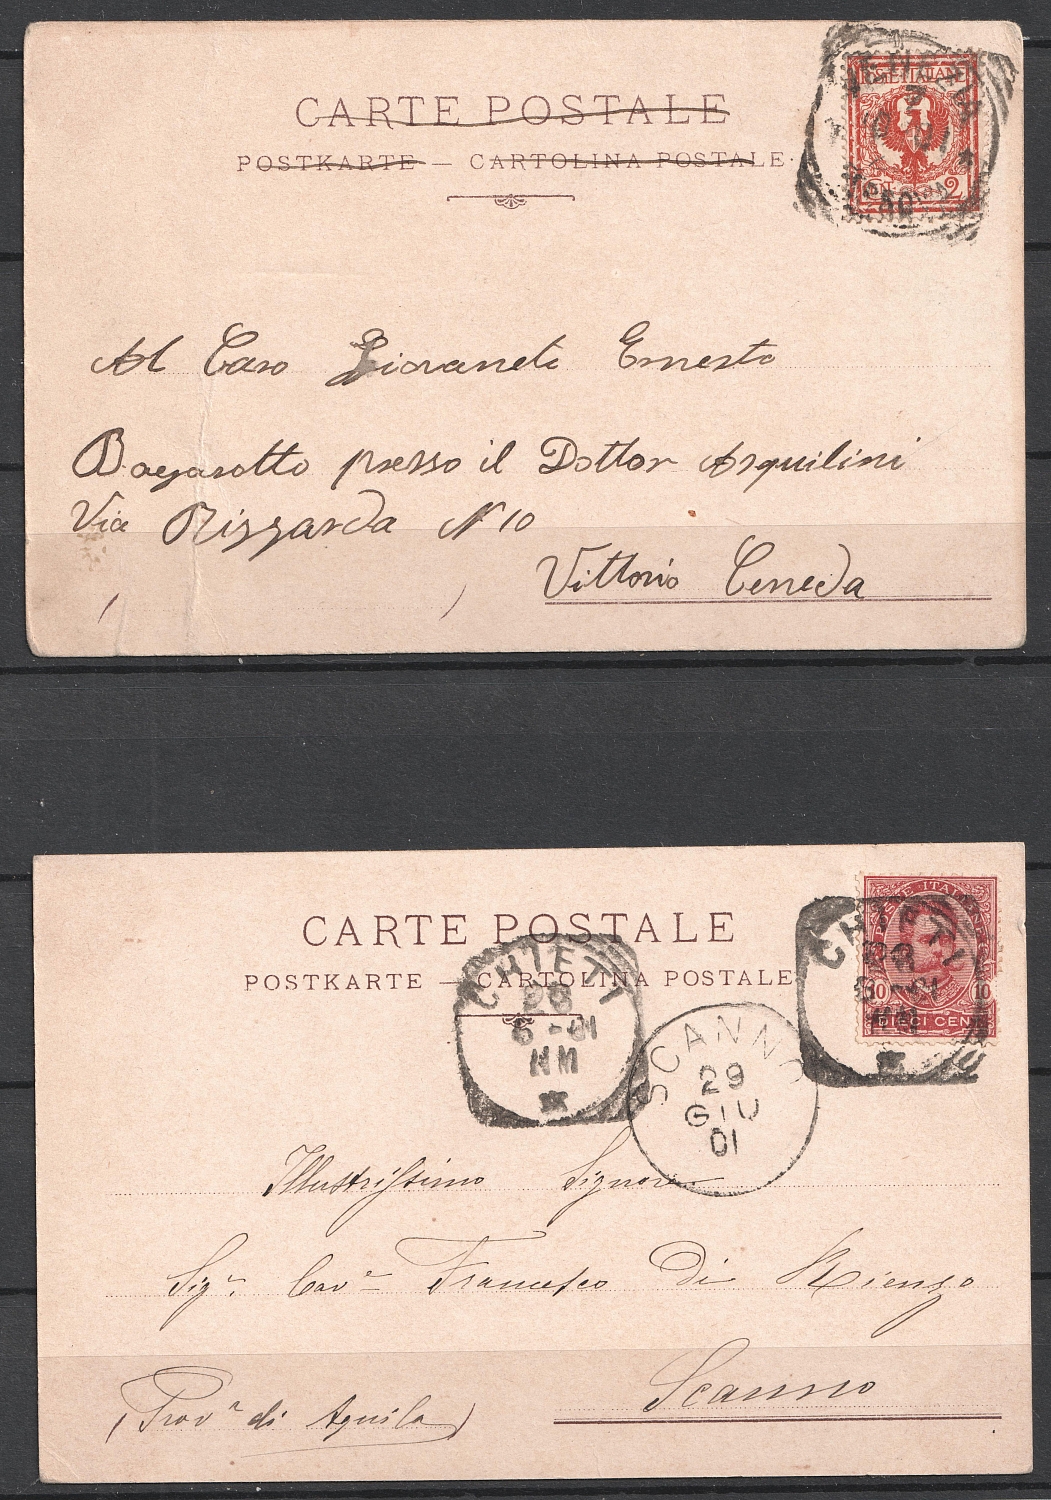 CARTE POSTALE
POSTKARTE — CARTOLINA POSTALE.
POSTE ITALIANE
2
Al Caro Giovaneti Ernesto
Bagarotto presso il Dottor Asquilini
Via Rizzarda N 10
Vittorio Ceneda
CARTE POSTALE
POSTKARTE — CARTOLINA POSTALE
POSTE ITALIANE
10 10
DIECI CENT
CHIETI
28
6-01
CHIETI
28
SCANNO
29
GIU
01
Illustrissimo Signore
Sigr. Cavre Francesco Di Rienzo
Scanno
(Prova di Aquila)